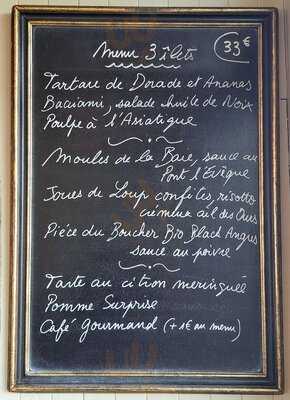 Menu 3 îlets
33€
Tartare de Dorade et Ananas
Baciami, salade huile de Noix
Poulpe à l'Asiatique
Moules de la Baie, sauce au
Pont l'Evêque
Joues de Loup confites, risotto
crémeux ail des Ours
Pièce du Boucher Bio Black Angus
sauce au poivre
Tarte au citron meringuée
Pomme Surprise
Café gourmand (+1€ au menu)